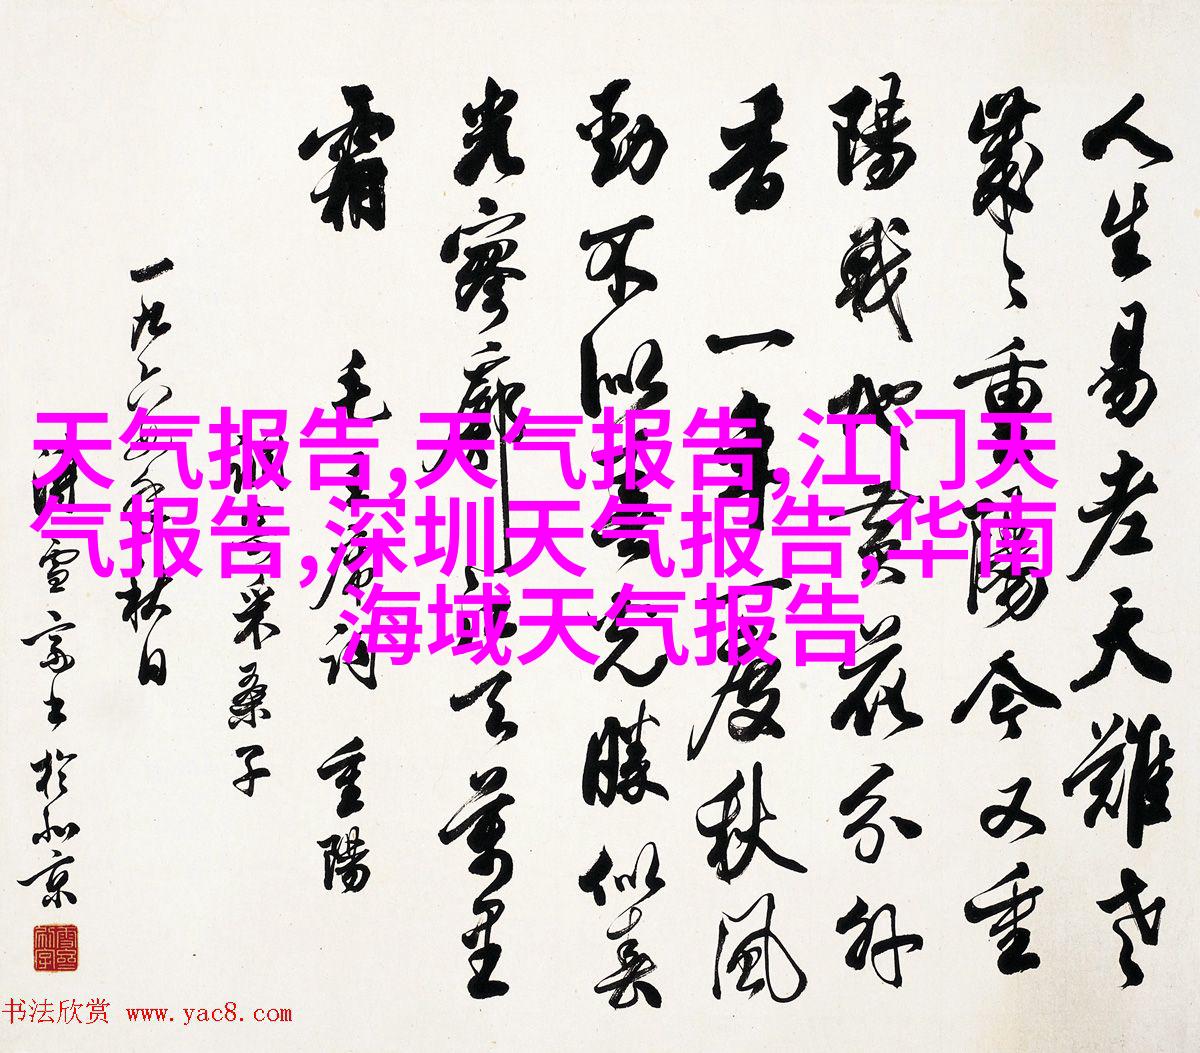 人生易老天難老
歲〻重陽今又重
陽戰地黃花分外
香 一年一度秋風
勁不似春光勝似春
光寥廓江天萬里
霜 毛主席詞 重陽
調寄采桑子
一九六年秋日
溥雪齋書於北京
天气报告,天气报告,江门天
气报告,深圳天气报告,华南
海域天气报告
书法欣赏 www.yac8.com